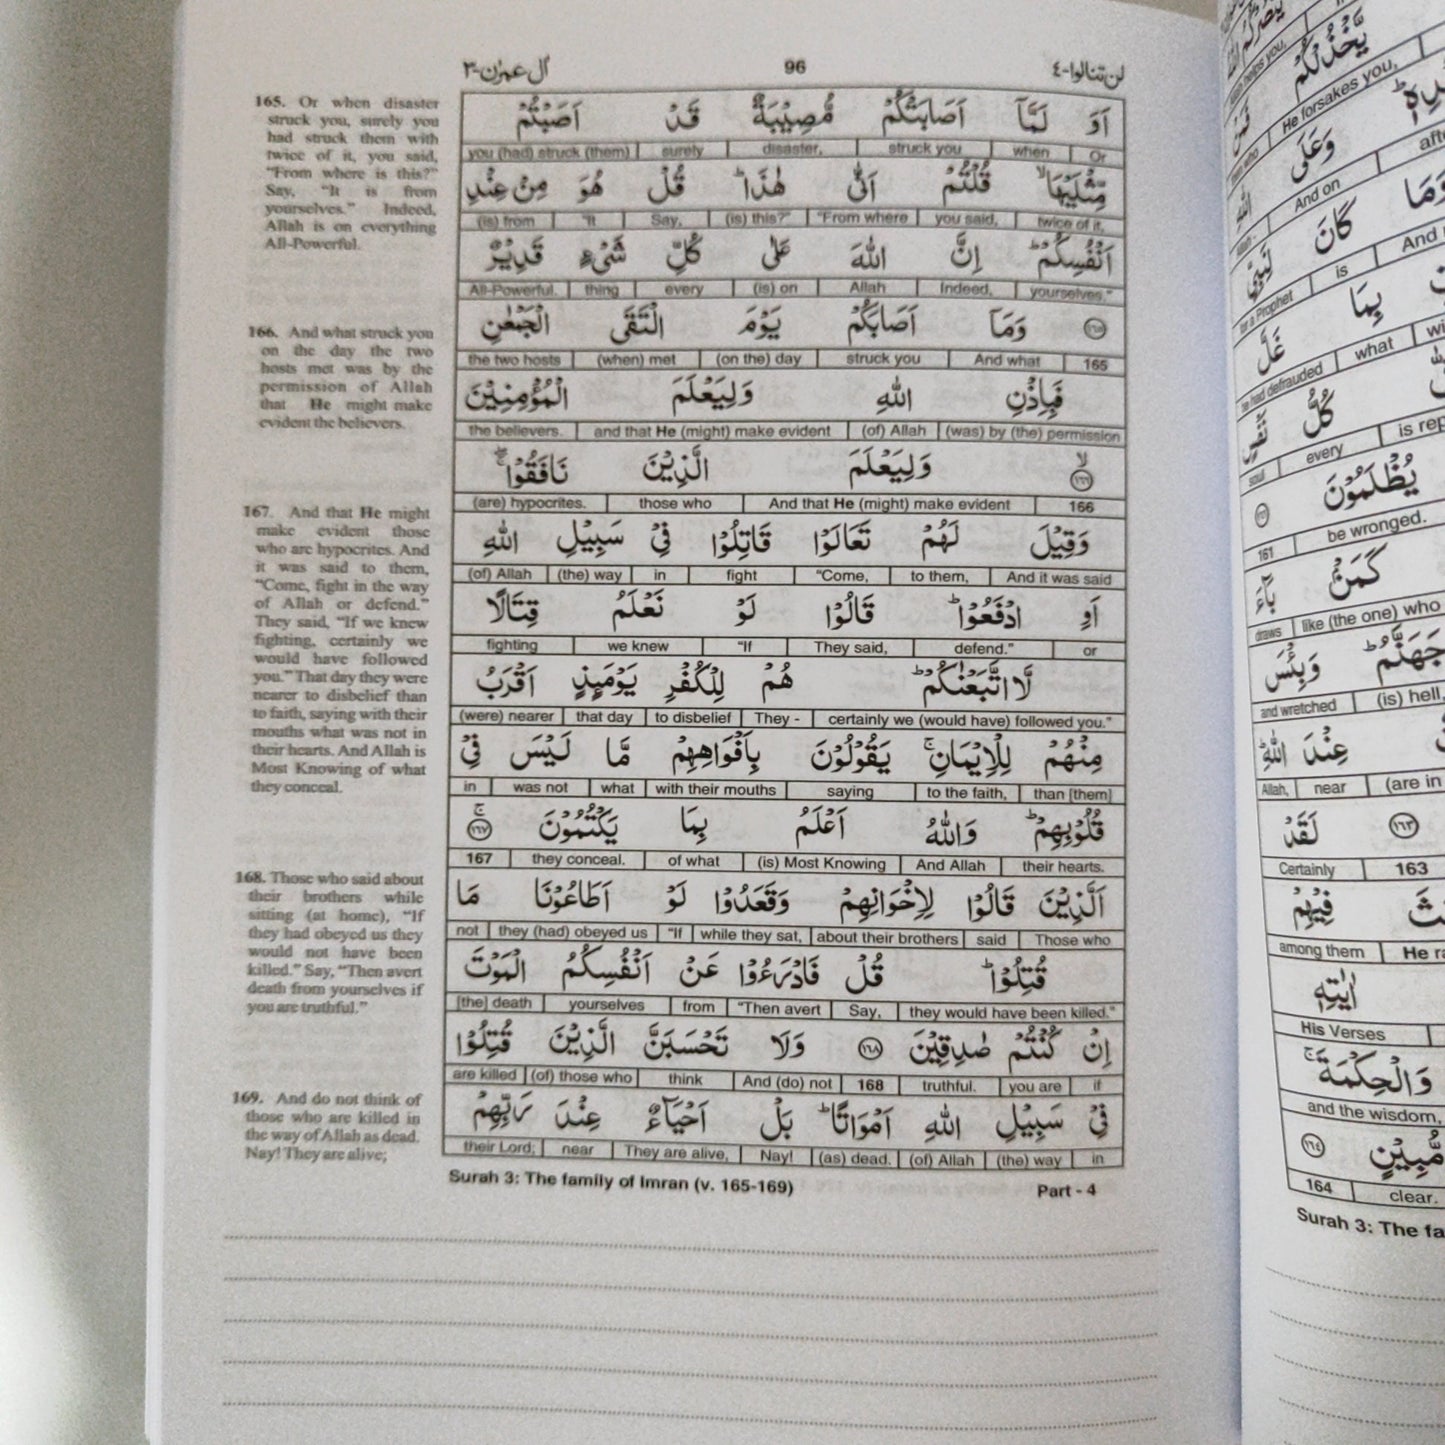 آل عمرٰن-٣
96
لن تنالوا-٤
165. Or when disaster
struck you, surely you
had struck them with
twice of it, you said,
"From where is this?"
Say, "It is from
yourselves." Indeed,
Allah is on everything
All-Powerful.
166. And what struck you
on the day the two
hosts met was by the
permission of Allah
that He might make
evident the believers.
167. And that He might
make evident those
who are hypocrites. And
it was said to them,
"Come, fight in the way
of Allah or defend."
They said, "If we knew
fighting, certainly we
would have followed
you." That day they were
nearer to disbelief than
to faith, saying with their
mouths what was not in
their hearts. And Allah is
Most Knowing of what
they conceal.
168. Those who said about
their brothers while
sitting (at home), "If
they had obeyed us they
would not have been
killed." Say, "Then avert
death from yourselves if
you are truthful."
169. And do not think of
those who are killed in
the way of Allah as dead.
Nay! They are alive;
اَوَ لَمَّاۤ اَصَابَتْكُمْ مُّصِيْبَةٌ قَدْ اَصَبْتُمْ
you (had) struck (them) surely disaster, struck you when Or
مِّثْلَيْهَا ۙ قُلْتُمْ اَنّٰى هٰذَا ؕ قُلْ هُوَ مِنْ عِنْدِ
(is) from "It Say, (is) this?" "From where you said, twice of it,
اَنْفُسِكُمْ ؕ اِنَّ اللّٰهَ عَلٰى كُلِّ شَيْءٍ قَدِيْرٌ
All-Powerful. thing every (is) on Allah Indeed, yourselves."
١٦٥ وَمَاۤ اَصَابَكُمْ يَوْمَ الْتَقَى الْجَمْعٰنِ
the two hosts (when) met (on the) day struck you And what 165
فَبِاِذْنِ اللّٰهِ وَلِيَعْلَمَ الْمُؤْمِنِيْنَ
the believers. and that He (might) make evident (of) Allah (was) by (the) permission
١٦٦ ۙ وَلِيَعْلَمَ الَّذِيْنَ نَافَقُوْا ۖۚ
(are) hypocrites. those who And that He (might) make evident 166
وَقِيْلَ لَهُمْ تَعَالَوْا قَاتِلُوْا فِيْ سَبِيْلِ اللّٰهِ
(of) Allah (the) way in fight "Come, to them, And it was said
اَوِ ادْفَعُوْا ؕ قَالُوْا لَوْ نَعْلَمُ قِتَالًا
fighting we knew "If They said, defend." or
لَّا اتَّبَعْنٰكُمْ ؕ هُمْ لِلْكُفْرِ يَوْمَئِذٍ اَقْرَبُ
(were) nearer that day to disbelief They - certainly we (would have) followed you."
مِنْهُمْ لِلْاِيْمَانِ ۚ يَقُوْلُوْنَ بِاَفْوَاهِهِمْ مَّا لَيْسَ فِيْ
in was not what with their mouths saying to the faith, than [them]
قُلُوْبِهِمْ ؕ وَاللّٰهُ اَعْلَمُ بِمَا يَكْتُمُوْنَ ١٦٧ ۚ
167 they conceal. of what (is) Most Knowing And Allah their hearts.
اَلَّذِيْنَ قَالُوْا لِاِخْوَانِهِمْ وَقَعَدُوْا لَوْ اَطَاعُوْنَا مَا
not they (had) obeyed us "If while they sat, about their brothers said Those who
قُتِلُوْا ؕ قُلْ فَادْرَءُوْا عَنْ اَنْفُسِكُمُ الْمَوْتَ
[the] death yourselves from "Then avert Say, they would have been killed."
اِنْ كُنْتُمْ صٰدِقِيْنَ ١٦٨ وَلَا تَحْسَبَنَّ الَّذِيْنَ قُتِلُوْا
are killed (of) those who think And (do) not 168 truthful. you are if
فِيْ سَبِيْلِ اللّٰهِ اَمْوَاتًا ؕ بَلْ اَحْيَآءٌ عِنْدَ رَبِّهِمْ
their Lord; near They are alive, Nay! (as) dead. (of) Allah (the) way in
Surah 3: The family of Imran (v. 165-169) Part - 4
يَّخْذُلْكُمْ
He forsakes you,
وَعَلَى
And on
وَمَا كَانَ لِنَبِيٍّ
for a Prophet is
بِمَا غَلَّ
he had defrauded what
كُلُّ نَفْسٍ
soul every
يُظْلَمُوْنَ ١٦١
161 be wronged.
كَمَنْۢ بَآءَ
draws like (the one) who
جَهَنَّمُ ؕ وَبِئْسَ
and wretched (is) hell,
عِنْدَ اللّٰهِ ؕ
Allah, near (are in
١٦٣ لَقَدْ
Certainly 163
فِيْهِمْ
among them
اٰيٰتِهٖ
His Verses
وَالْحِكْمَةَ ۚ
and the wisdom,
مُّبِيْنٍ ١٦٤
164 clear.
Surah 3: The fa